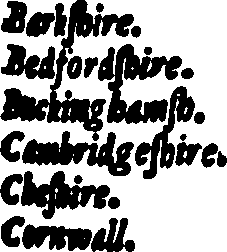 Barkſhire.
Bedfordſhire.
Buckinghamſh.
Cambridgeſhire.
Cheſhire.
Cornwall.